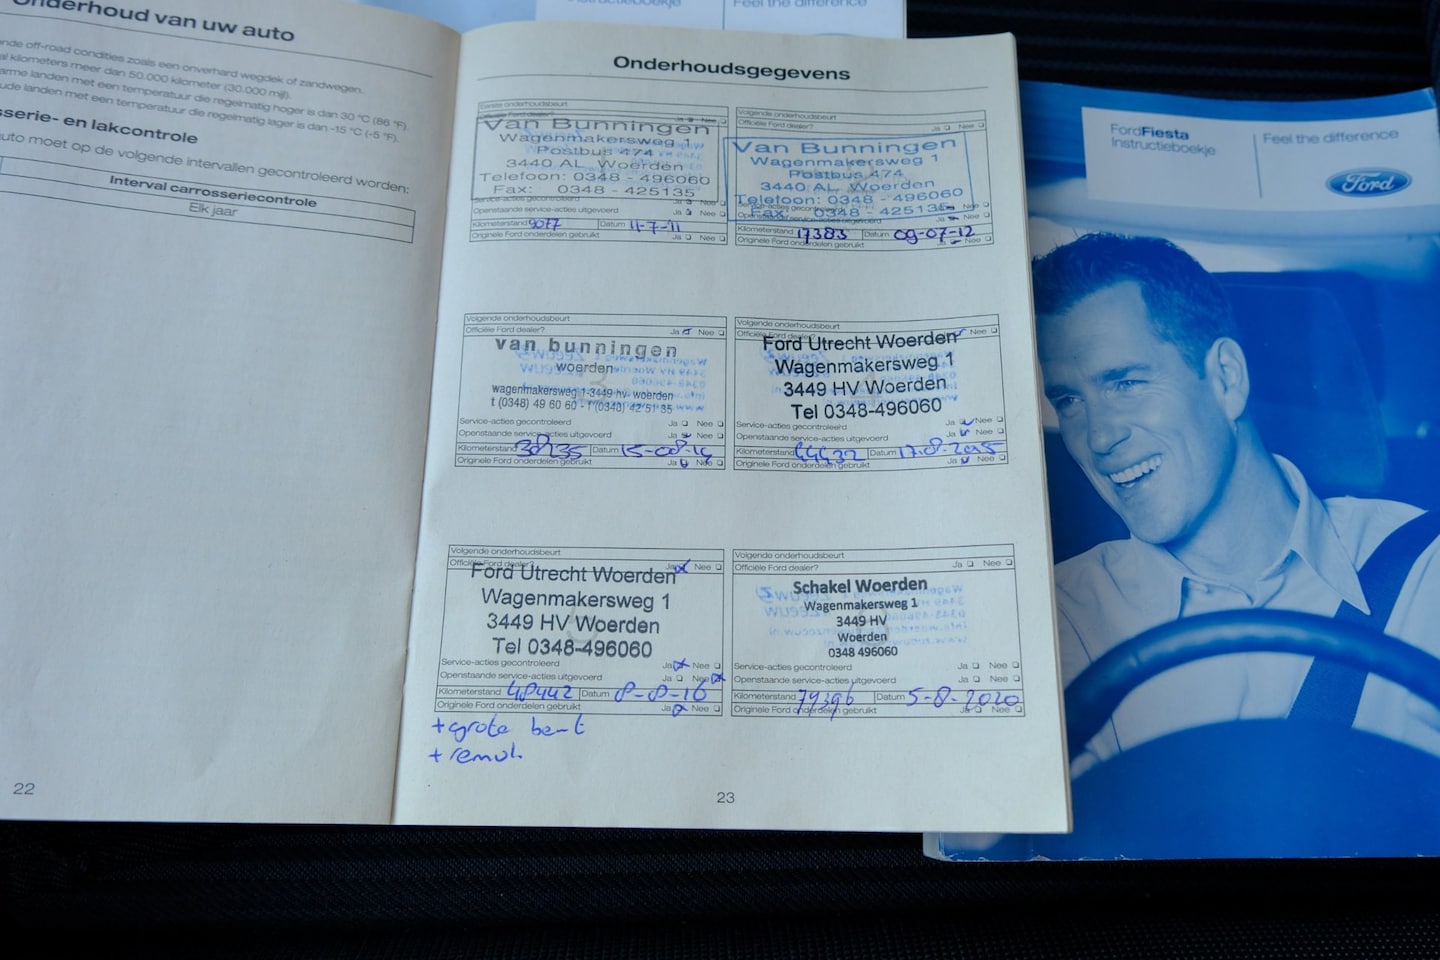 Instructieboekje
Feel the difference
Onderhoud van uw auto
ende off-road condities zoals een onverhard wegdek of zandwegen.
al kilometers meer dan 50.000 kilometer (30.000 mijl).
arme landen met een temperatuur die regelmatig hoger is dan 30 °C (86 °F).
ude landen met een temperatuur die regelmatig lager is dan -15 °C (-5 °F).
sserie- en lakcontrole
auto moet op de volgende intervallen gecontroleerd worden:
Interval carrosseriecontrole
Elk jaar
22
Onderhoudsgegevens
Eerste onderhoudsbeurt
Officiële Ford dealer? Ja Nee
Van Bunningen
Wagenmakersweg 1
Postbus 474
3440 AL Woerden
Telefoon: 0348 - 496060
Fax: 0348 - 425135
Service-acties gecontroleerd Ja Nee
Openstaande service-acties uitgevoerd Ja Nee
Kilometerstand 9077 Datum 11-7-11
Originele Ford onderdelen gebruikt Ja Nee
Volgende onderhoudsbeurt
Officiële Ford dealer? Ja Nee
Van Bunningen
Wagenmakersweg 1
Postbus 474
3440 AL Woerden
Telefoon: 0348 - 496060
Fax: 0348 - 425135
Kilometerstand 17383 Datum 09-07-12
Originele Ford onderdelen gebruikt Ja Nee
Volgende onderhoudsbeurt
Officiële Ford dealer? Ja Nee
van bunningen
woerden
wagenmakersweg 1-3449 hv- woerden
t (0348) 49 60 60 - f (0348) 42 51 35
Service-acties gecontroleerd Ja Nee
Openstaande service-acties uitgevoerd Ja Nee
Kilometerstand 38235 Datum 15-08-14
Originele Ford onderdelen gebruikt Ja Nee
Volgende onderhoudsbeurt
Officiële Ford dealer? Ja Nee
Ford Utrecht Woerden
Wagenmakersweg 1
3449 HV Woerden
Tel 0348-496060
Service-acties gecontroleerd Ja Nee
Openstaande service-acties uitgevoerd Ja Nee
Kilometerstand 44432 Datum 17-8-2015
Originele Ford onderdelen gebruikt Ja Nee
Volgende onderhoudsbeurt
Officiële Ford dealer? Ja Nee
Ford Utrecht Woerden
Wagenmakersweg 1
3449 HV Woerden
Tel 0348-496060
Service-acties gecontroleerd Ja Nee
Openstaande service-acties uitgevoerd Ja Nee
Kilometerstand 48442 Datum 8-8-16
Originele Ford onderdelen gebruikt Ja Nee
+ grote
+
Volgende onderhoudsbeurt
Officiële Ford dealer? Ja Nee
Schakel Woerden
Wagenmakersweg 1
3449 HV
Woerden
0348 496060
Service-acties gecontroleerd Ja Nee
Openstaande service-acties uitgevoerd Ja Nee
Kilometerstand 79396 Datum 5-8-2020
Originele Ford onderdelen gebruikt Ja Nee
23
FordFiesta
Instructieboekje
Feel the difference
Ford